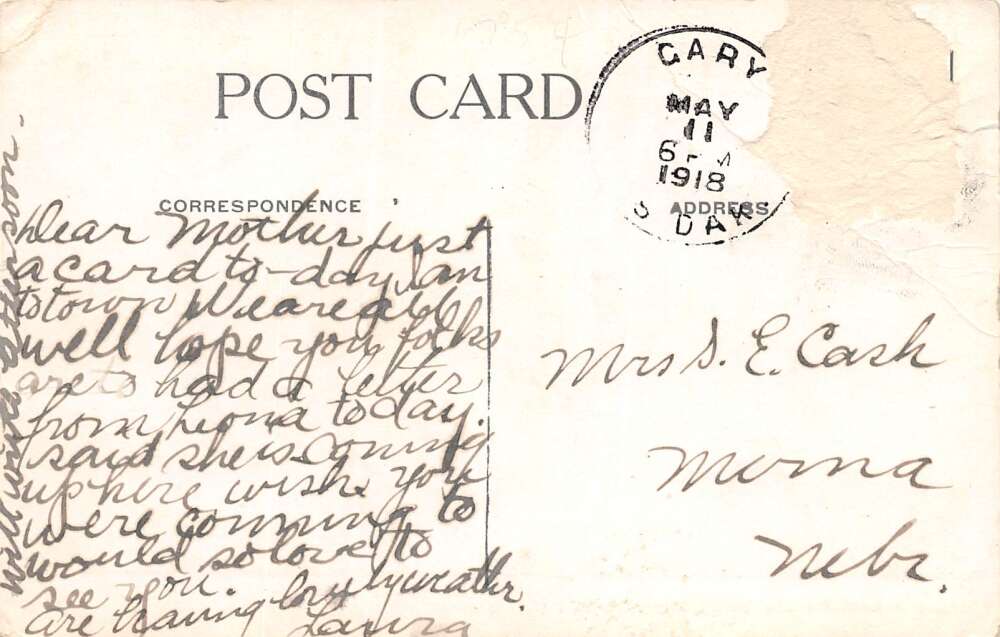 POST CARD
GARY
MAY
11
6 PM
1918
S DAK.
CORRESPONDENCE
ADDRESS
Dear Mother just
a card to-day I am
to town We are all
well hope you folks
are to had a letter
from Leona today.
said she is coming
up here wish you
were comming to
would so love to
see you.
are having lovly weathr.
Laura
will write soon
Mrs S. E. Cash
Merna
Nebr.